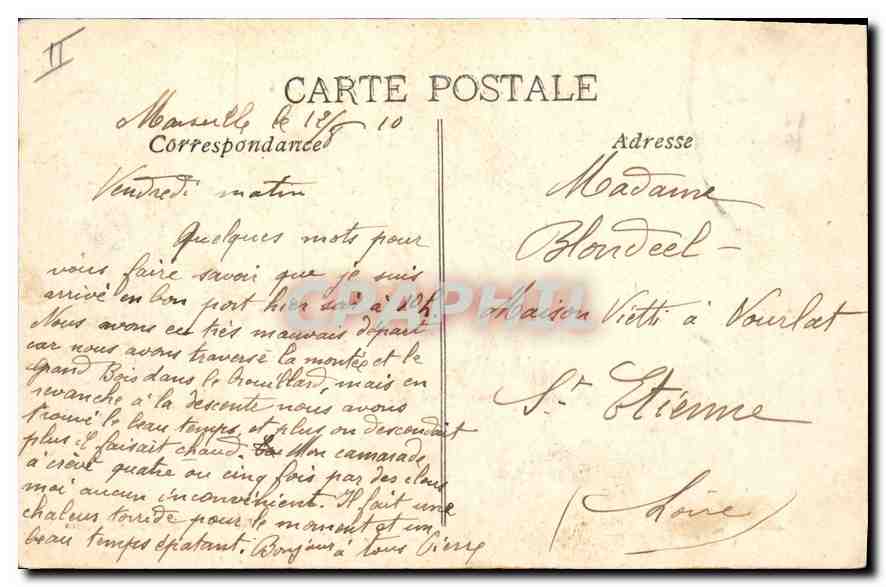 II
CARTE POSTALE
Marseille le 12/8 10
Correspondance
Vendredi matin
Quelques mots pour
vous faire savoir que je suis
arrivé en bon port hier soir à 10h.
Nous avons eu très mauvais départ
car nous avons traversé la montée et le
Grand Bois dans le brouillard, mais en
revanche à la descente nous avons
trouvé le beau temps, et plus on descendait
plus il faisait chaud. Mon camarade
à crevé quatre ou cinq fois par des clous
moi aucun inconvénient. Il fait une
chaleur torride pour le moment et un
beau temps épatant. Bonjour à tous Pierre
Adresse
Madame
Blondeel -
Maison Vietti à Vourlat
St Etienne
(Loire)
DELCAMPE
GRAPHIL